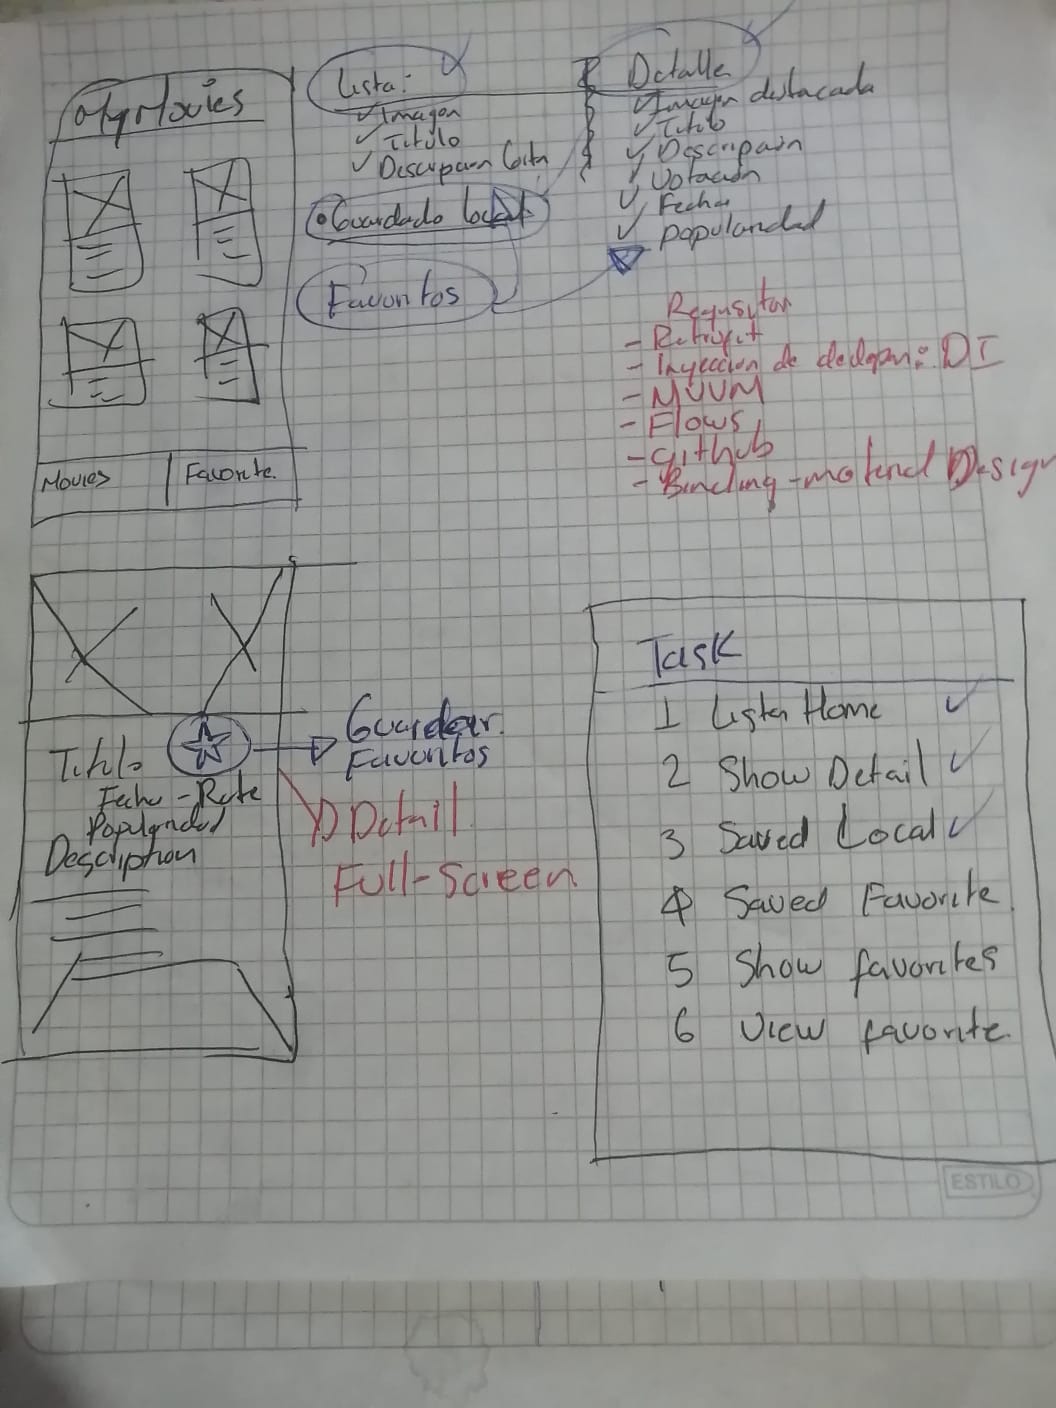 MyMovies
Movies
Favorite.
Lista:
✓ Imagen
✓ Titulo
✓ Descripcion Corta
• Guardado local
Favoritos
Detalle
✓ Imagen destacada
✓ Titulo
✓ Descripción
✓ Votación
✓ Fecha
✓ popularidad
Requsitos
- Retrofit
- Inyeccion de : DI
- MVVM
- Flows
- Github
- Binding - material Design
Titulo
Fecha - Rate
Popularidad
Description
Guardar
Favoritos
Detail
Full-Screen
Task
1 Listar Home ✓
2 Show Detail ✓
3 Saved Local ✓
4 Saved Favorite
5 Show favorites
6 View favorite.
ESTILO